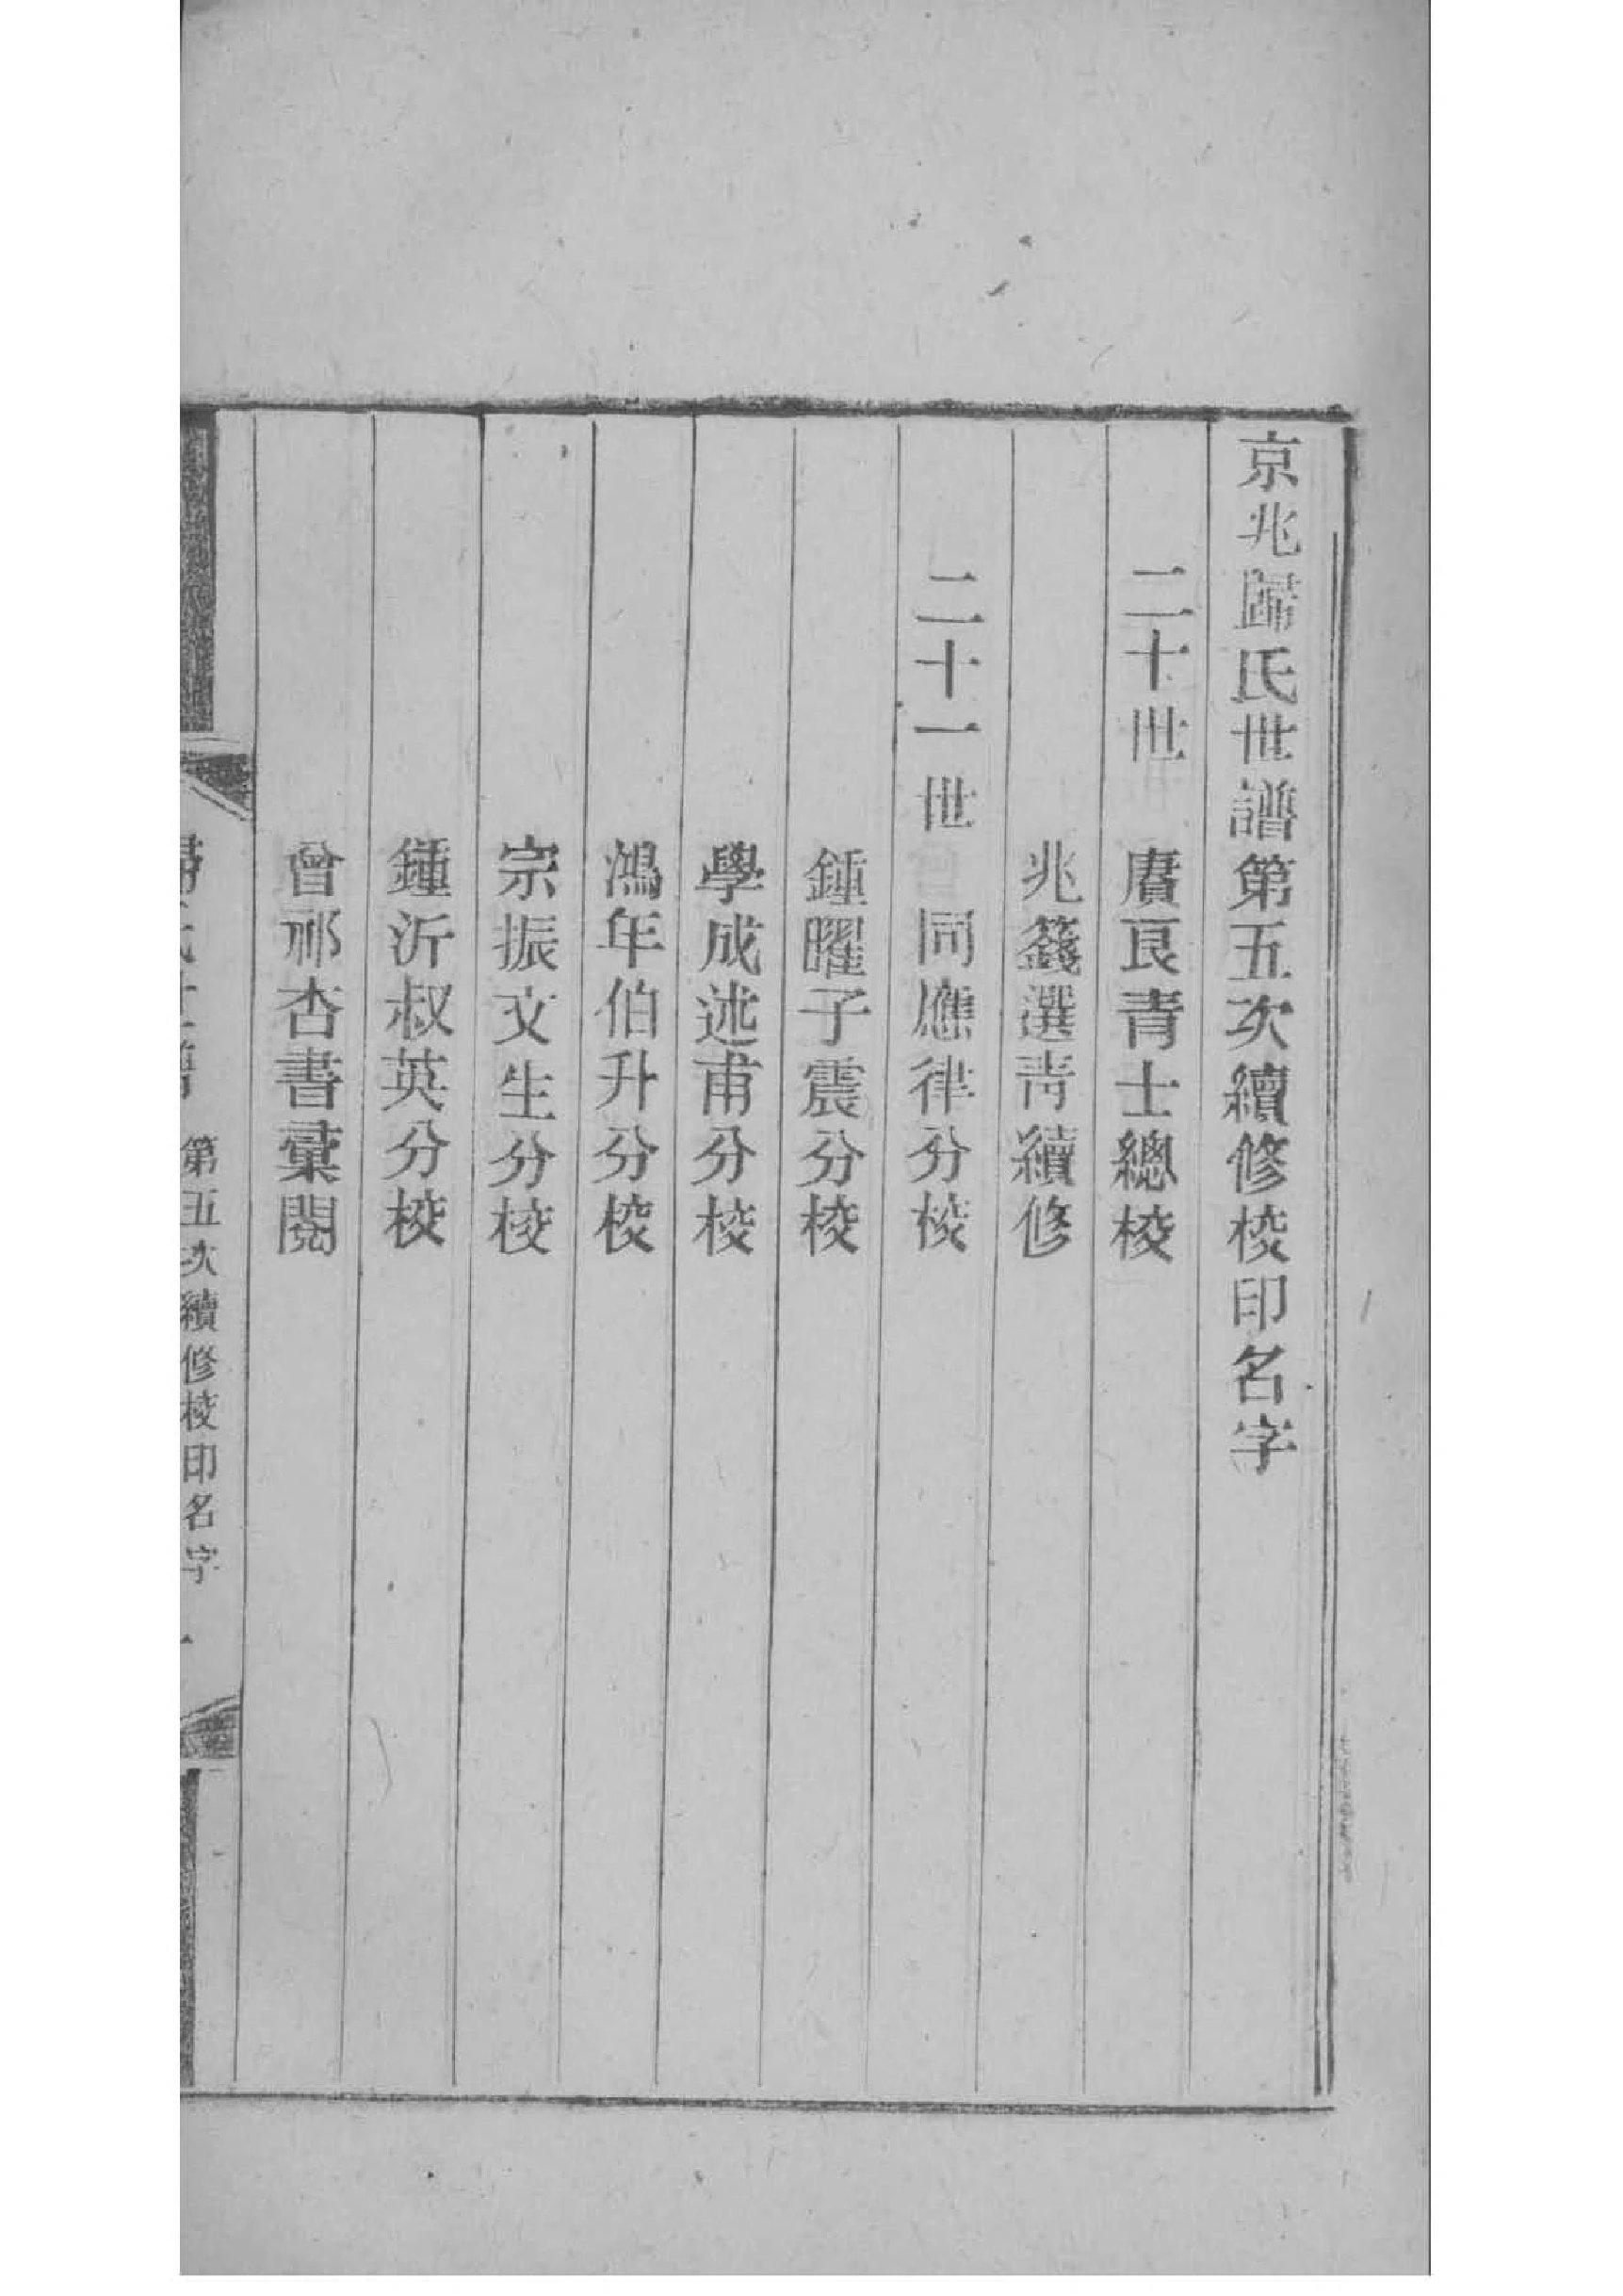 京兆歸氏世譜第五次續修校印名字
二十世　賡良青士總校
兆籛選青續修
二十一世　同應律分校
鍾曜子震分校
學成述甫分校
鴻年伯升分校
宗振文生分校
鍾沂叔英分校
曾祁杏書彙閱
第五次續修校印名字
一